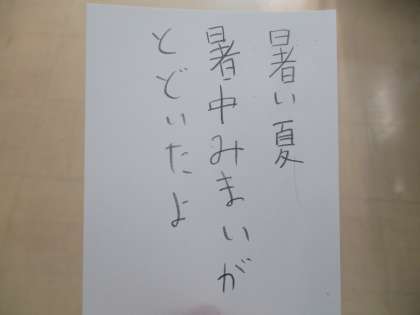 暑い夏
暑中みまいが
とどいたよ